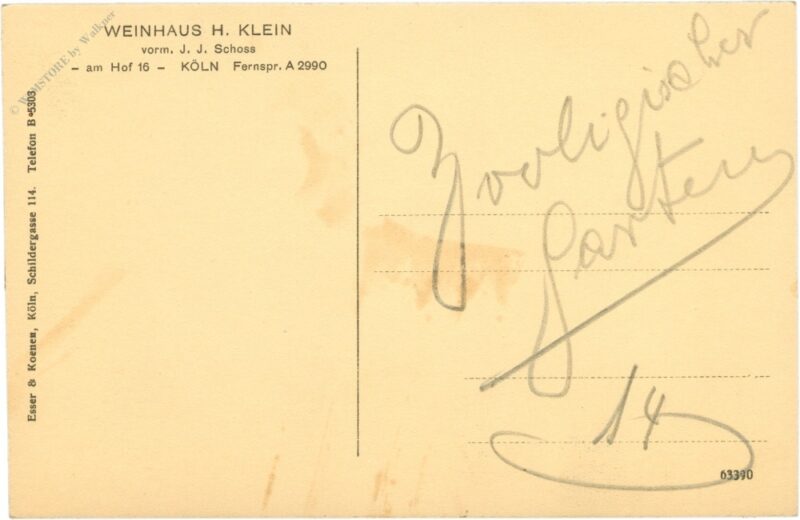 WEINHAUS H. KLEIN
vorm. J. J. Schoss
- am Hof 16 - KÖLN Fernspr. A 2990
© WAMSTORE by Walkner
Esser & Koenen, Köln, Schildergasse 114. Telefon B 5303
Zooligischer
Garten
14
63390